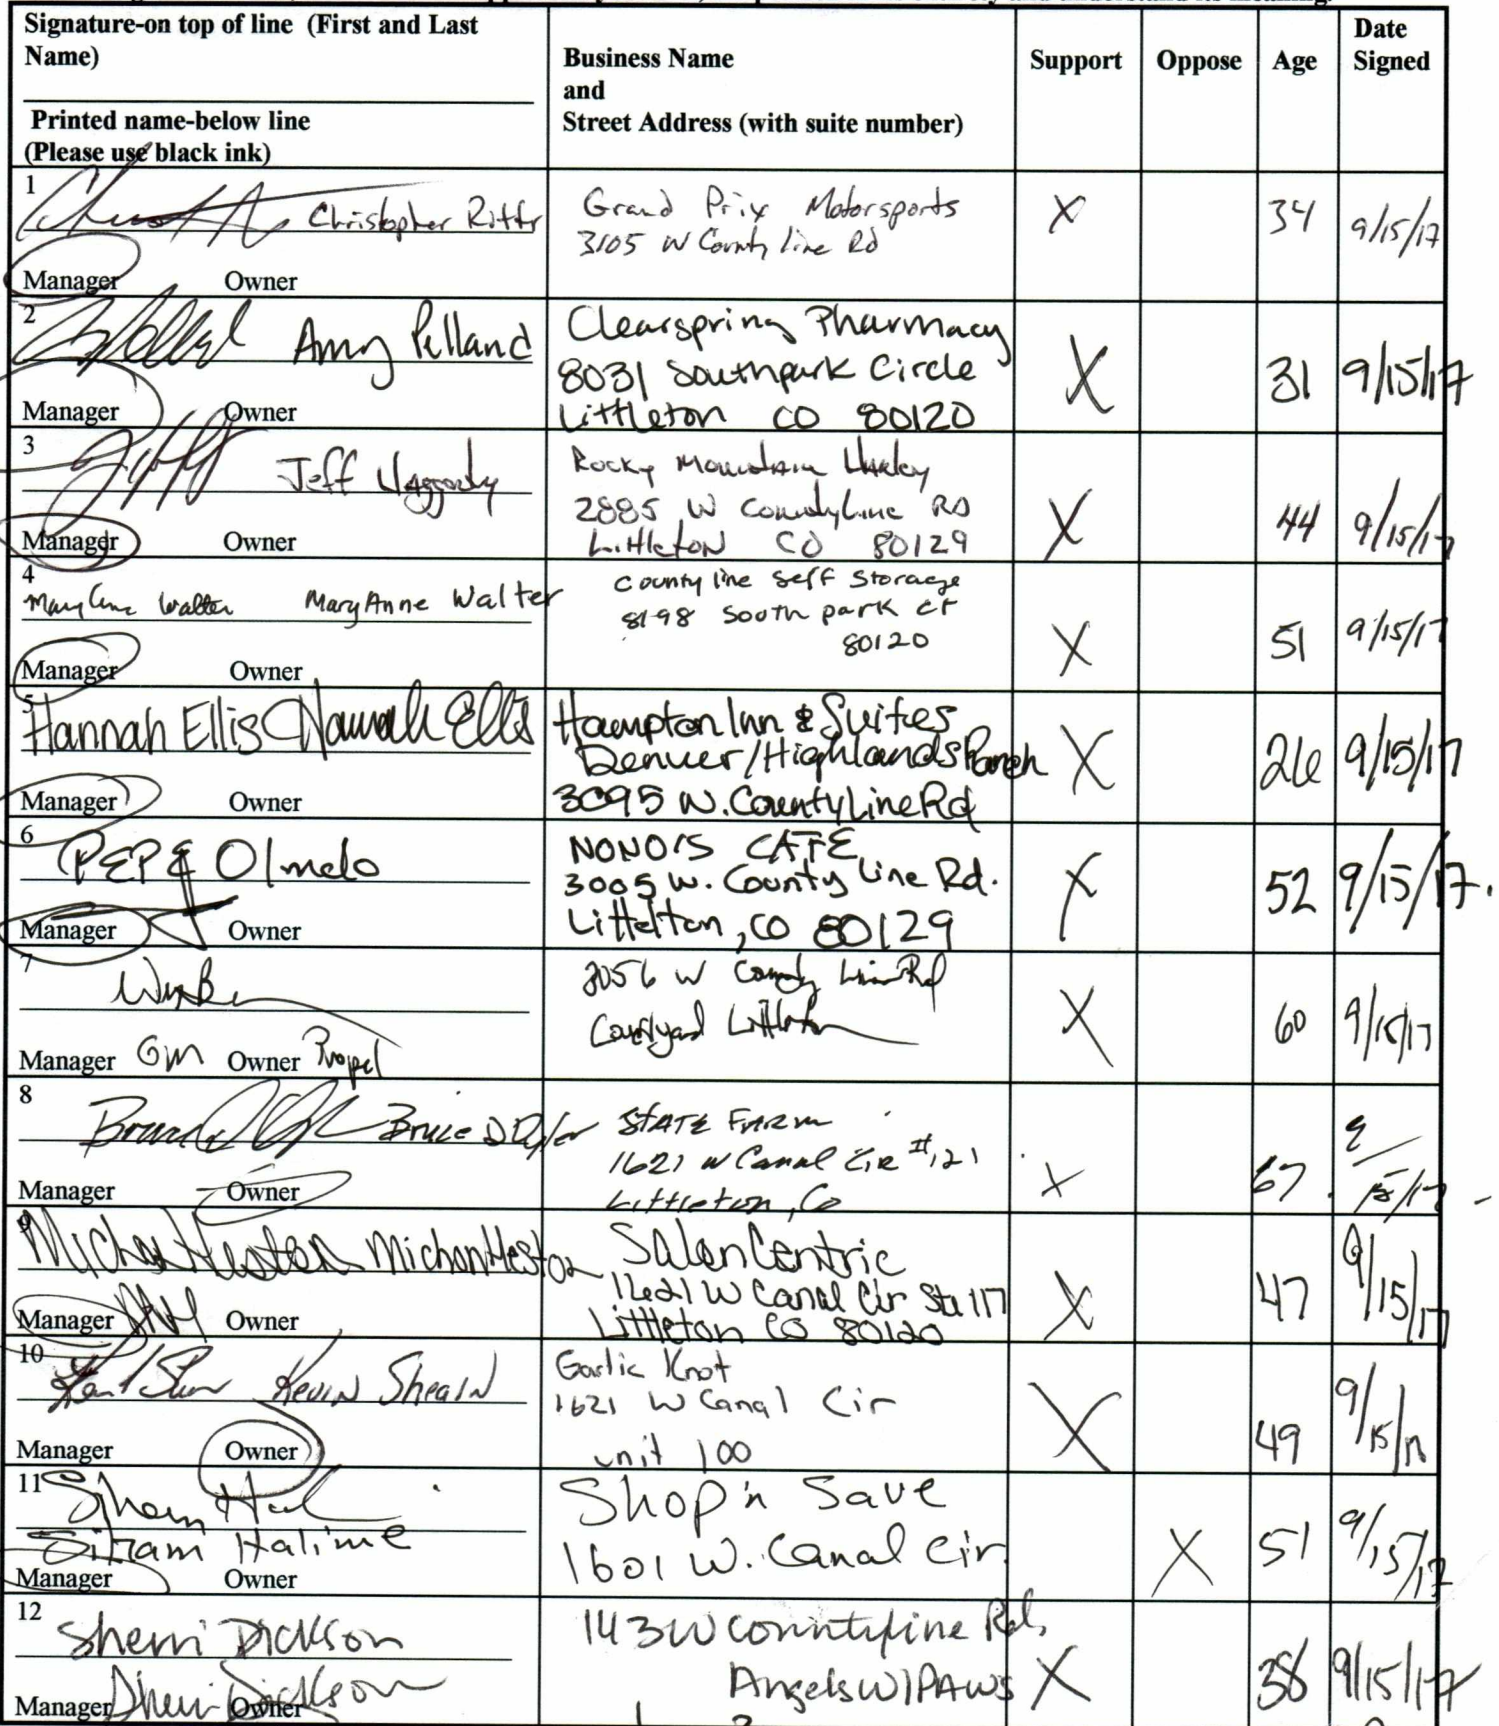 Signature-on top of line (First and Last Name)
Printed name-below line
(Please use black ink)
Business Name
and
Street Address (with suite number)
Support
Oppose
Age
Date
Signed
1
Christopher Ritter
Manager Owner
Grand Prix Motorsports
3105 W County line Rd
X
34
9/15/17
2
Amy Pelland
Manager Owner
Clearspring Pharmacy
8031 Southpark Circle
Littleton CO 80120
X
31
9/15/17
3
Jeff
Manager Owner
Rocky Mountain Harley
2885 W CountyLine RD
Littleton CO 80129
X
44
9/15/17
4
Mary Anne Walter MaryAnne Walter
Manager Owner
County line Self Storage
8198 South park ct
80120
X
51
9/15/17
5
Hannah Ellis Hannah Ellis
Manager Owner
Hampton Inn & Suites
Denver/Highlands Ranch
3095 W. County Line Rd
X
26
9/15/17
6
PEPE Olmedo
Manager Owner
NONO'S CAFE
3005 W. County Line Rd.
Littelton, CO 80129
X
52
9/15/17.
7
Manager GM Owner
3056 W County Line Rd
Courtyard Littleton
X
60
9/15/17
8
Bruce D
Manager Owner
STATE FARM
1621 W Canal Cir #121
Littleton, Co
X
67
9/15/17
9
Michon Heston Michon Heston
Manager Owner
SalonCentric
1621 W Canal Cir Ste 117
Littleton CO 80120
X
47
9/15/17
10
Kevin Shearn
Manager Owner
Garlic Knot
1621 W Canal Cir
unit 100
X
49
9/15/17
11
Siham Halime
Manager Owner
Shop'n Save
1601 W. Canal Cir
X
51
9/15/17
12
Sherri Dickson
Sherri Dickson
Manager Owner
143 W Countyline Rd,
Angels W/ PAWS
X
38
9/15/17